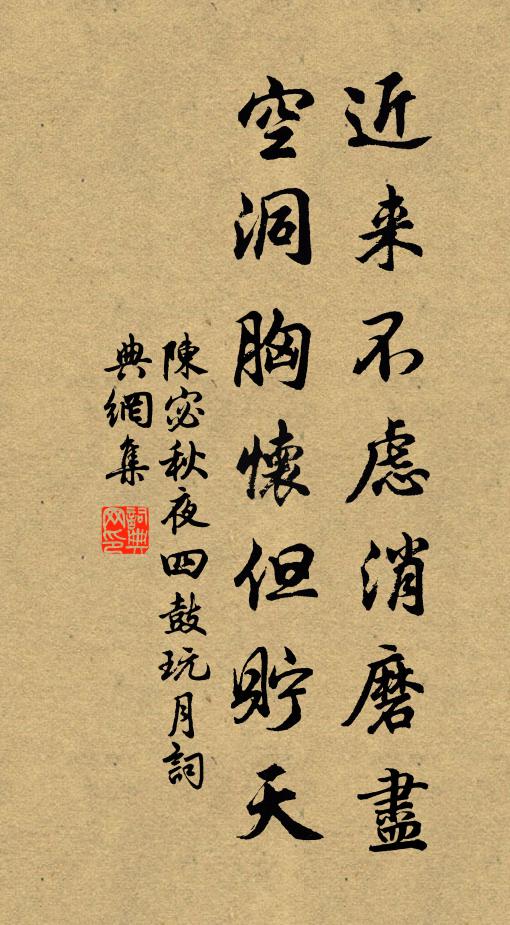 近来不虑消磨盡
空洞胸懷但貯天
陳宓秋夜四鼓玩月詞
典網集
詞典
网印